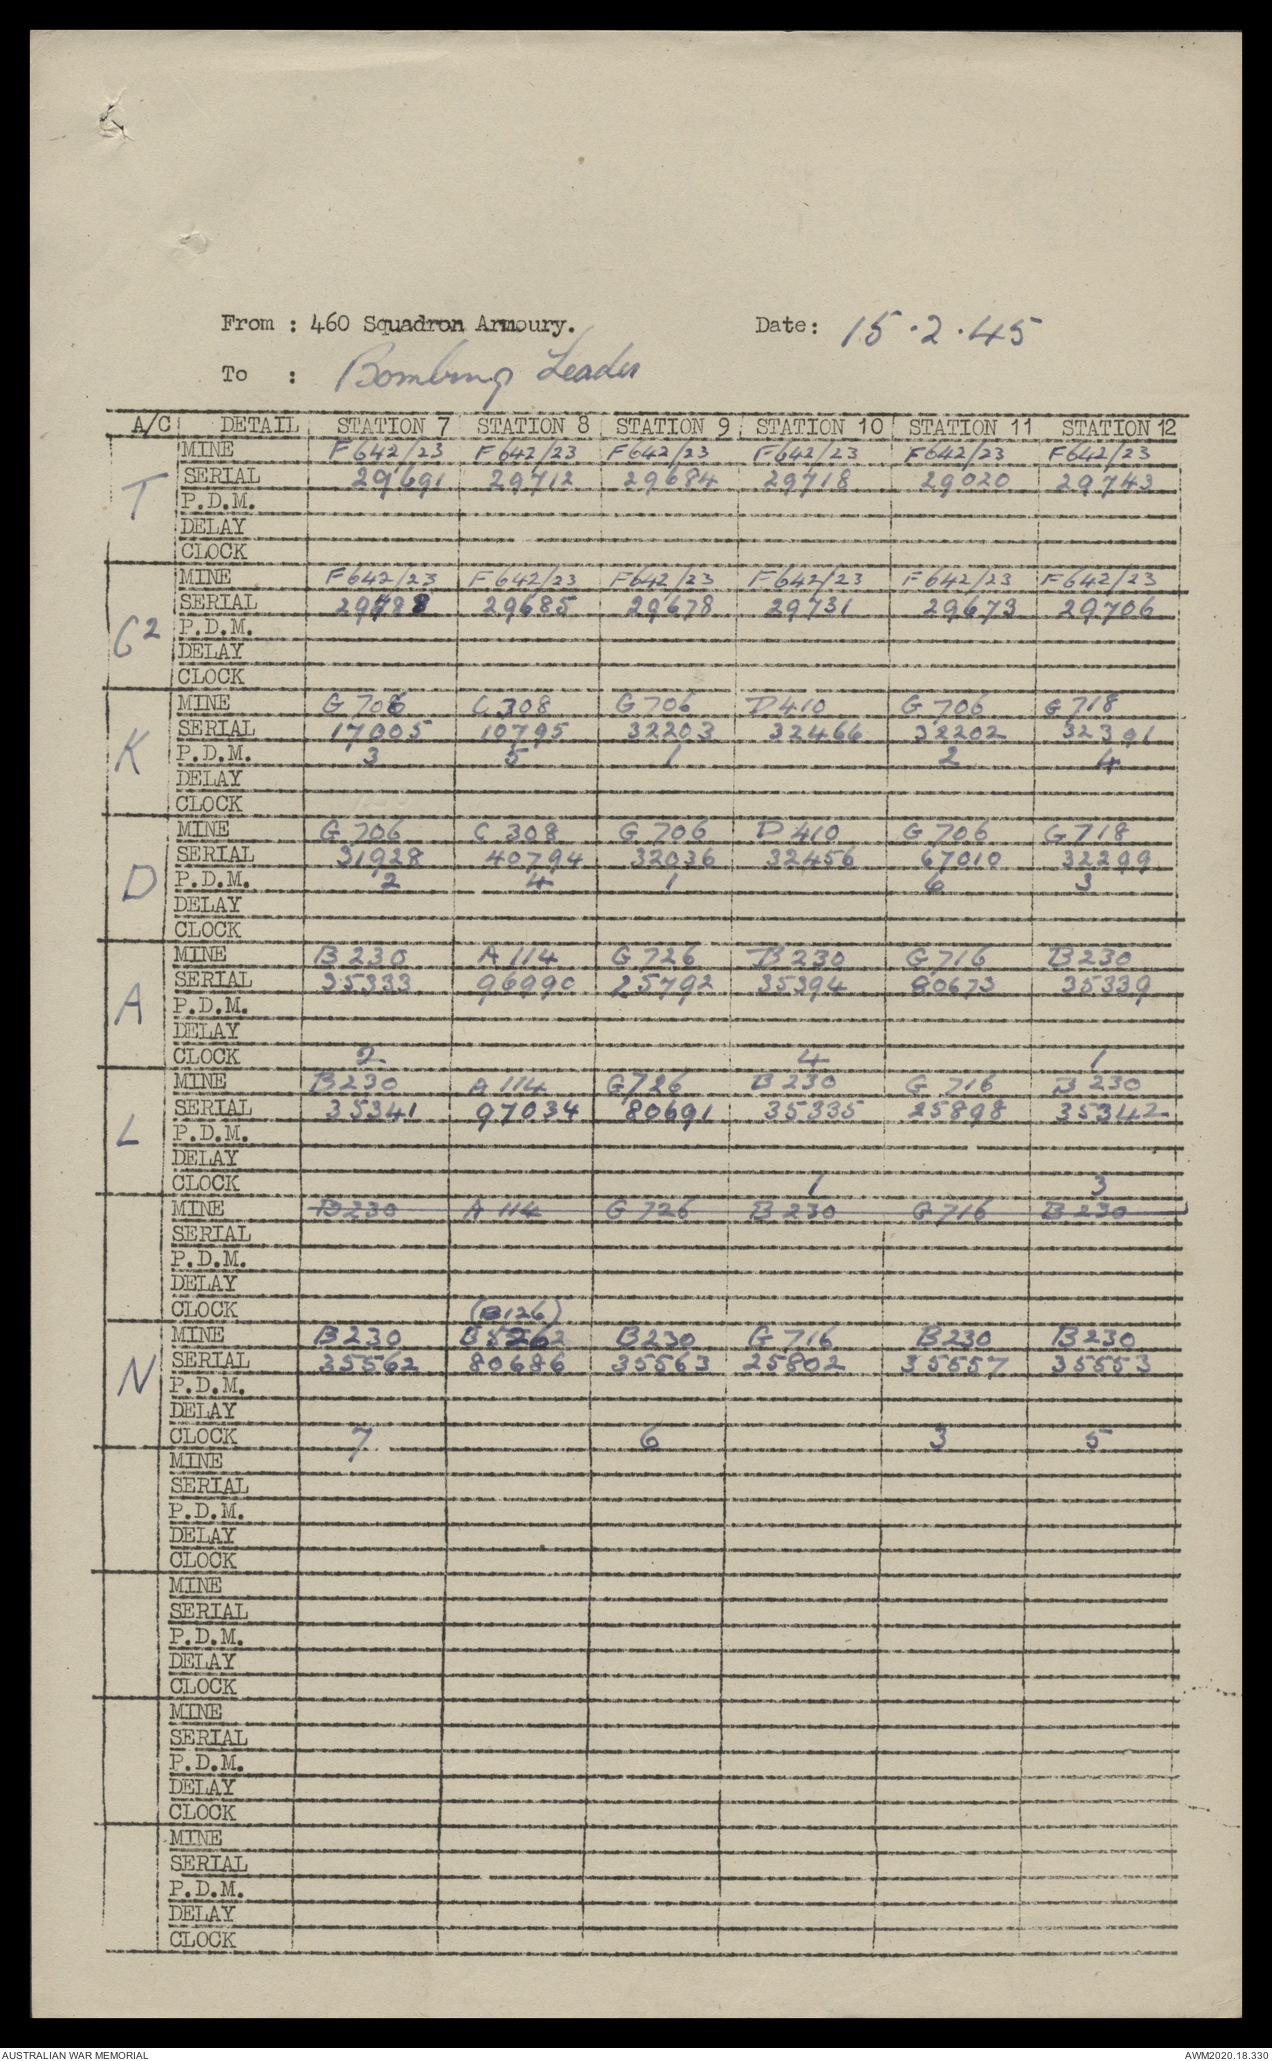 From : 460 Squadron Armoury. Date: 15.2.45
To : Bombing Leader
A/C DETAIL STATION 7 STATION 8 STATION 9 STATION 10 STATION 11 STATION 12
T
MINE F642/23 F642/23 F642/23 F642/23 F642/23 F642/23
SERIAL 29691 29712 29684 29718 29020 29743
P.D.M.
DELAY
CLOCK
G2
MINE F642/23 F642/23 F642/23 F642/23 F642/23 F642/23
SERIAL 29685 29678 29731 29673 29706
P.D.M.
DELAY
CLOCK
K
MINE G 706 C 308 G 706 D 410 G 706 G 718
SERIAL 17005 10795 32203 32466 32202 32391
P.D.M. 3 5 1 2 4
DELAY
CLOCK
D
MINE G 706 C 308 G 706 D 410 G 706 G 718
SERIAL 31928 40794 32036 32456 67010 32299
P.D.M. 2 4 1 6 3
DELAY
CLOCK
A
MINE B 230 A 114 G 726 B 230 G 716 B 230
SERIAL 35333 96990 25792 35394 80673 35339
P.D.M.
DELAY
CLOCK 2 4 1
L
MINE B 230 A 114 G 726 B 230 G 716 B 230
SERIAL 35341 97034 80691 35335 25898 35342
P.D.M.
DELAY
CLOCK 1 3
MINE B 230 A 114 G 726 B 230 G 716 B 230
SERIAL
P.D.M.
DELAY
CLOCK (B126)
N
MINE B 230 B 230 G 716 B 230 B 230
SERIAL 35562 80686 35563 25802 35557 35553
P.D.M.
DELAY
CLOCK 7 6 3 5
MINE
SERIAL
P.D.M.
DELAY
CLOCK
MINE
SERIAL
P.D.M.
DELAY
CLOCK
MINE
SERIAL
P.D.M.
DELAY
CLOCK
MINE
SERIAL
P.D.M.
DELAY
CLOCK
AUSTRALIAN WAR MEMORIAL AWM2020.18.330